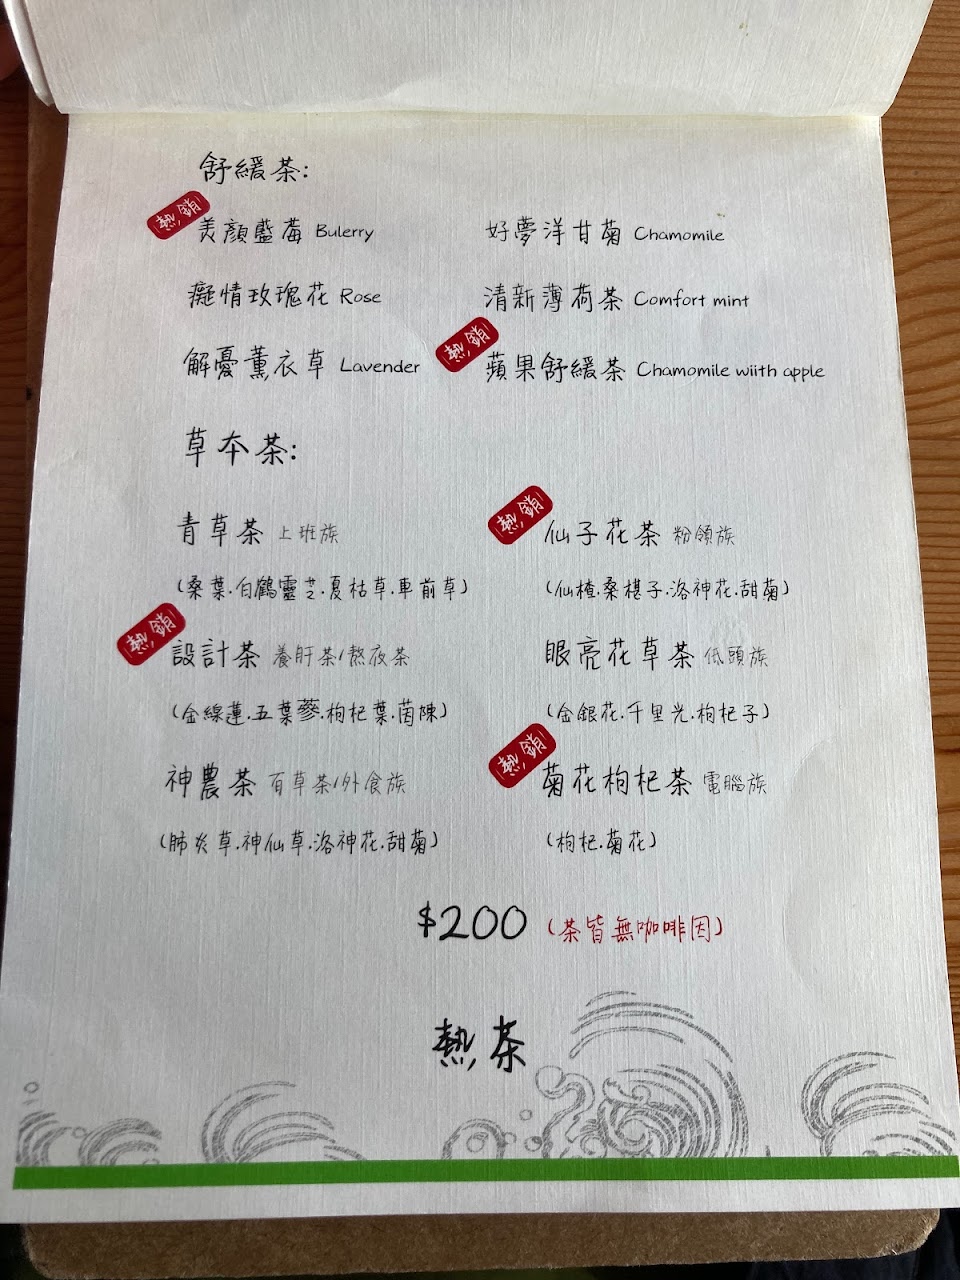 舒緩茶:
熱銷
美顏藍莓 Bulerry
好夢洋甘菊 Chamomile
癡情玫瑰花 Rose
清新薄荷茶 Comfort mint
解憂薰衣草 Lavender
熱銷
蘋果舒緩茶 Chamomile wiith apple
草本茶:
青草茶 上班族
(桑葉.白鶴靈芝.夏枯草.車前草)
熱銷
仙子花茶 粉領族
(仙楂桑椹子.洛神花.甜菊)
熱銷
設計茶 養肝茶/熬夜茶
(金線蓮.五葉蔘.枸杞葉.茵陳)
眼亮花草茶 低頭族
(金銀花.千里光.枸杞子)
神農茶 百草茶/外食族
(肺炎草.神仙草.洛神花.甜菊)
熱銷
菊花枸杞茶 電腦族
(枸杞.菊花)
$200 (茶皆無咖啡因)
熱茶